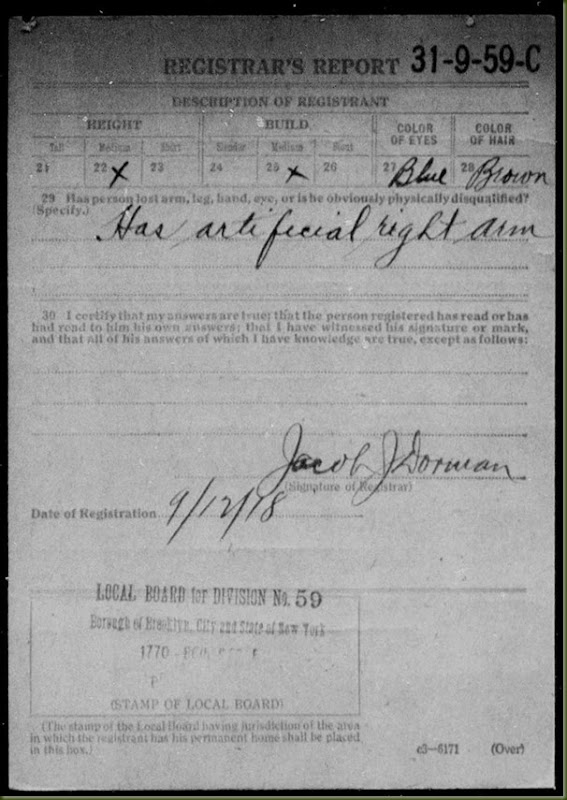 REGISTRAR'S REPORT 31-9-59-C
DESCRIPTION OF REGISTRANT
HEIGHT BUILD COLOR OF EYES COLOR OF HAIR
Tall Medium Short Slender Medium Stout
21 22 x 23 24 25 x 26 27 Blue 28 Brown
29 Has person lost arm, leg, hand, eye, or is he obviously physically disqualified?
(Specify.)
Has artificial right arm
30 I certify that my answers are true; that the person registered has read or has
had read to him his own answers; that I have witnessed his signature or mark,
and that all of his answers of which I have knowledge are true, except as follows:
Jacob J Dorman
(Signature of Registrar)
Date of Registration 9/12/18
LOCAL BOARD for DIVISION No. 59
Borough of Brooklyn, City and State of New York
1770
(STAMP OF LOCAL BOARD)
(The stamp of the Local Board having jurisdiction of the area
in which the registrant has his permanent home shall be placed
in this box.)
c3-6171 (Over)